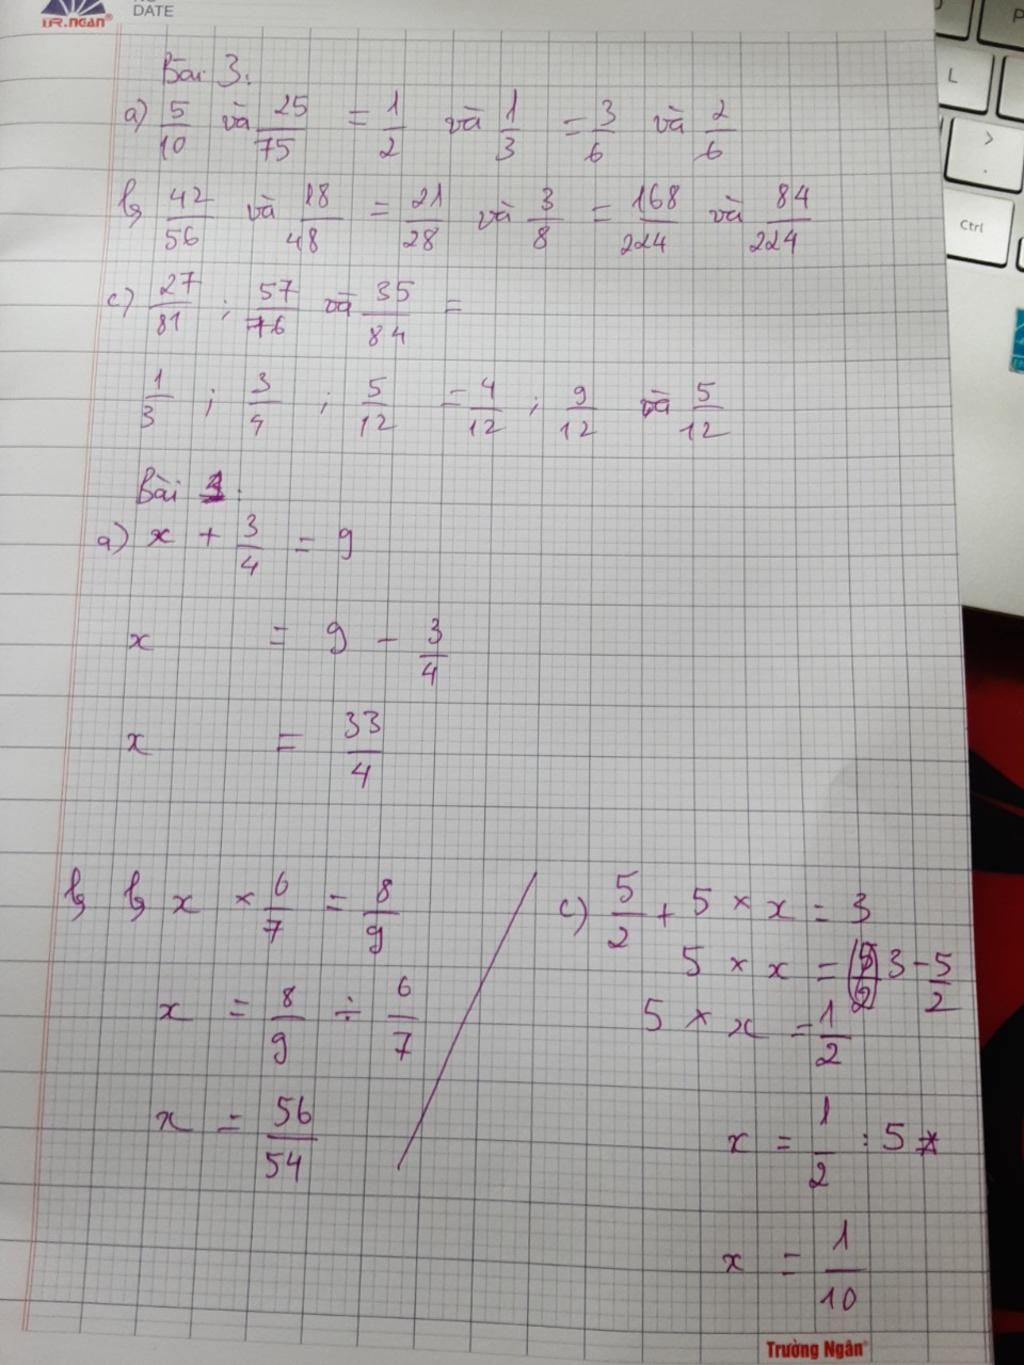 TR.NGAN®
DATE
Bài 3.
a) 5/10 và 25/75 = 1/2 và 1/3 = 3/6 và 2/6
b, 42/56 và 18/48 = 21/28 và 3/8 = 168/224 và 84/224
c) 27/81 ; 57/76 và 35/84 =
1/3 ; 3/4 ; 5/12 = 4/12 ; 9/12 và 5/12
Bài 3:
a) x + 3/4 = 9
x = 9 - 3/4
x = 33/4
b, b, x × 6/7 = 8/9
x = 8/9 ÷ 6/7
x = 56/54
c) 5/2 + 5 × x = 3
5 × x = 3 - 5/2
5 × x = 1/2
x = 1/2 : 5
x = 1/10
Trường Ngân®
L
>
.
Ctrl
P